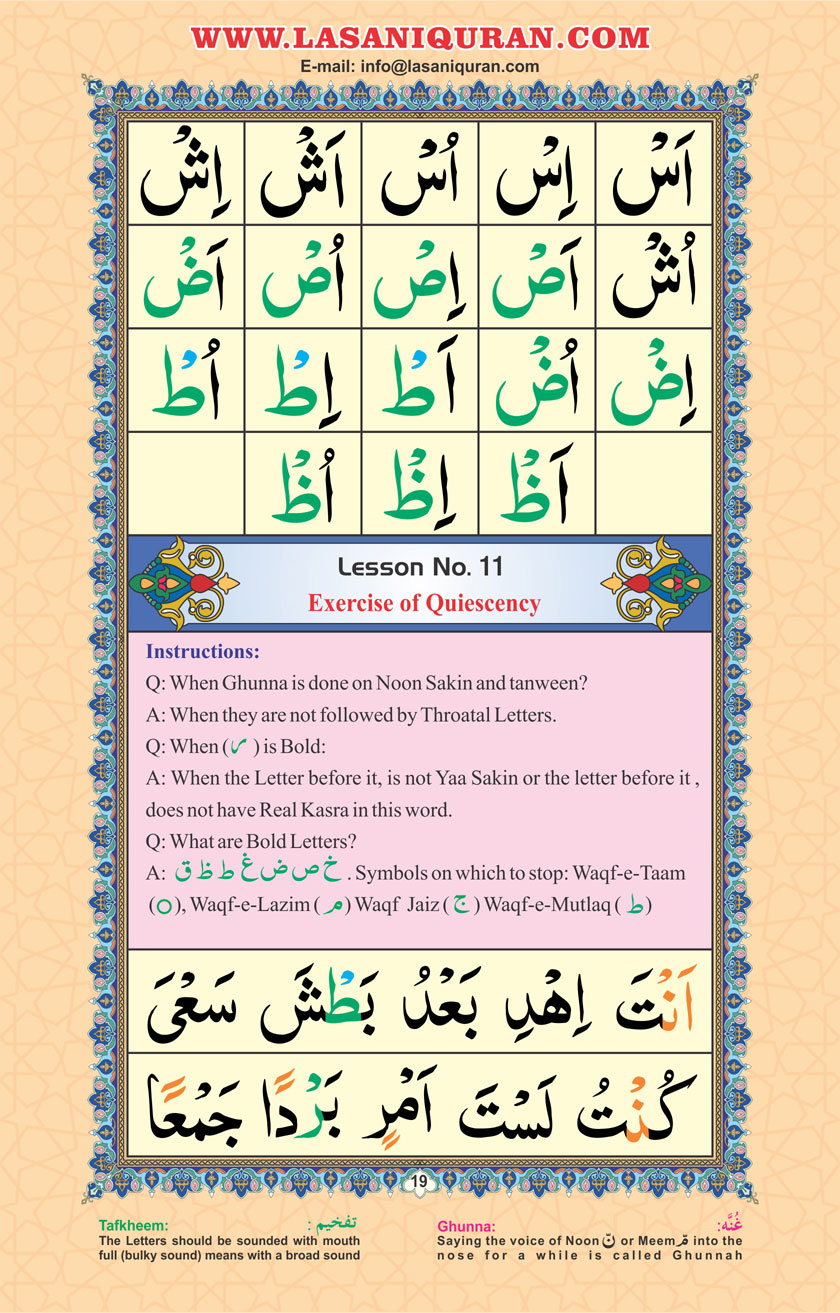 WWW.LASANIQURAN.COM
E-mail: info@lasaniquran.com
اَسْ اِسْ اُسْ اَشْ اِشْ
اُشْ اَصْ اِصْ اُصْ اَضْ
اِضْ اُضْ اَطْ اِطْ اُطْ
اَظْ اِظْ اُظْ
Lesson No. 11
Exercise of Quiescency
Instructions:
Q: When Ghunna is done on Noon Sakin and tanween?
A: When they are not followed by Throatal Letters.
Q: When (ر) is Bold:
A: When the Letter before it, is not Yaa Sakin or the letter before it ,
does not have Real Kasra in this word.
Q: What are Bold Letters?
A: خ ص ض غ ط ظ ق . Symbols on which to stop: Waqf-e-Taam
(O), Waqf-e-Lazim (مـ) Waqf Jaiz (ج) Waqf-e-Mutlaq (ط)
اَنْتَ اِهْدِ بَعْدُ بَطْشَ سَعْىَ
كُنْتُ لَسْتَ اَمْرٍ بَرْدًا جَمْعًا
19
Tafkheem: تفخیم :
The Letters should be sounded with mouth
full (bulky sound) means with a broad sound
Ghunna: غُنَّه:
Saying the voice of Noon نّ or Meem مّ into the
nose for a while is called Ghunnah